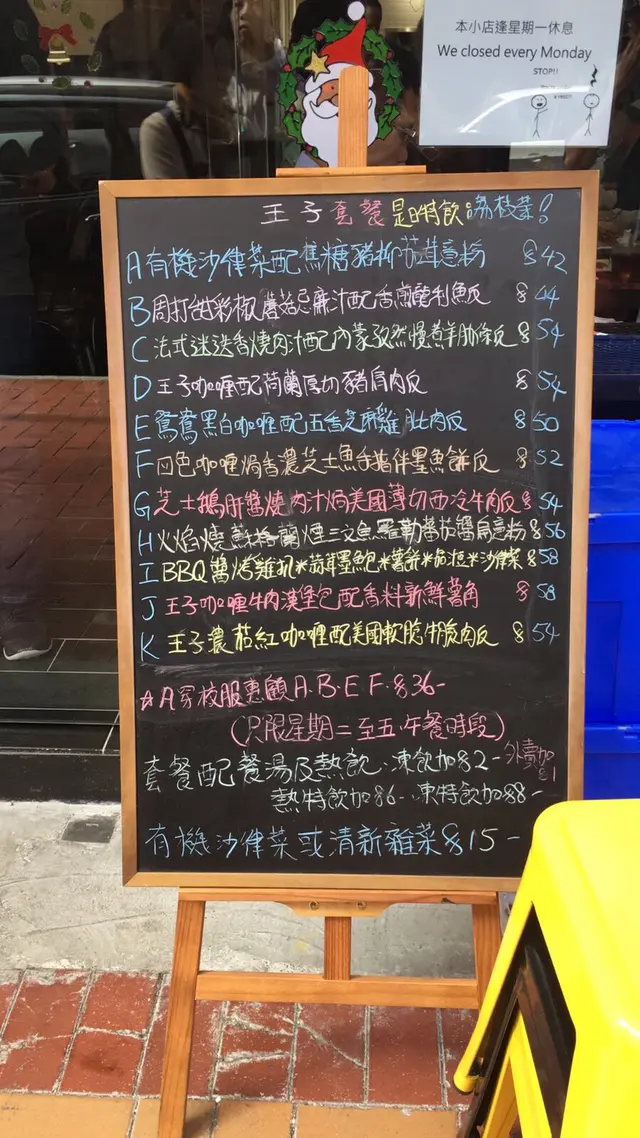 本小店逢星期一休息
We closed every Monday
STOP!!
王子套餐 是日特飲:荔枝茶!
A 有機沙律菜配焦糖豬柳茄茸意粉 $42
B 周打甜彩椒蘑菇忌廉汁配香煎龍利魚反 $44
C 法式迷迭香燒肉汁配內蒙孜然慢煮羊肋條反 $54
D 王子咖喱配荷蘭厚切豬肩肉反 $54
E 鴛鴦黑白咖喱配五香芝麻雞肶肉反 $50
F 四色咖喱焗香濃芝士魚手指伴墨魚餅反 $52
G 芝士鵝肝醬燒肉汁焗美國薄切西冷牛肉反 $54
H 火焰燒蘇格蘭煙三文魚羅勒蕃茄醬扁意粉 $56
I BBQ醬烤雞扒*蒜茸墨魚*薯餅*茄*沙律菜 $58
J 王子咖喱牛肉漢堡包配香料新鮮薯角 $58
K 王子濃茄紅咖喱配美國軟脆牛腩肉反 $54
☆A穿校服惠顧A.B.E F.$36-
(只限星期二至五,午餐時段)
套餐配餐湯及熱飲.凍飲加$2- 外賣加$1
熱特飲加$6- 凍特飲加$8-
有機沙律菜或清新雜菜$15-